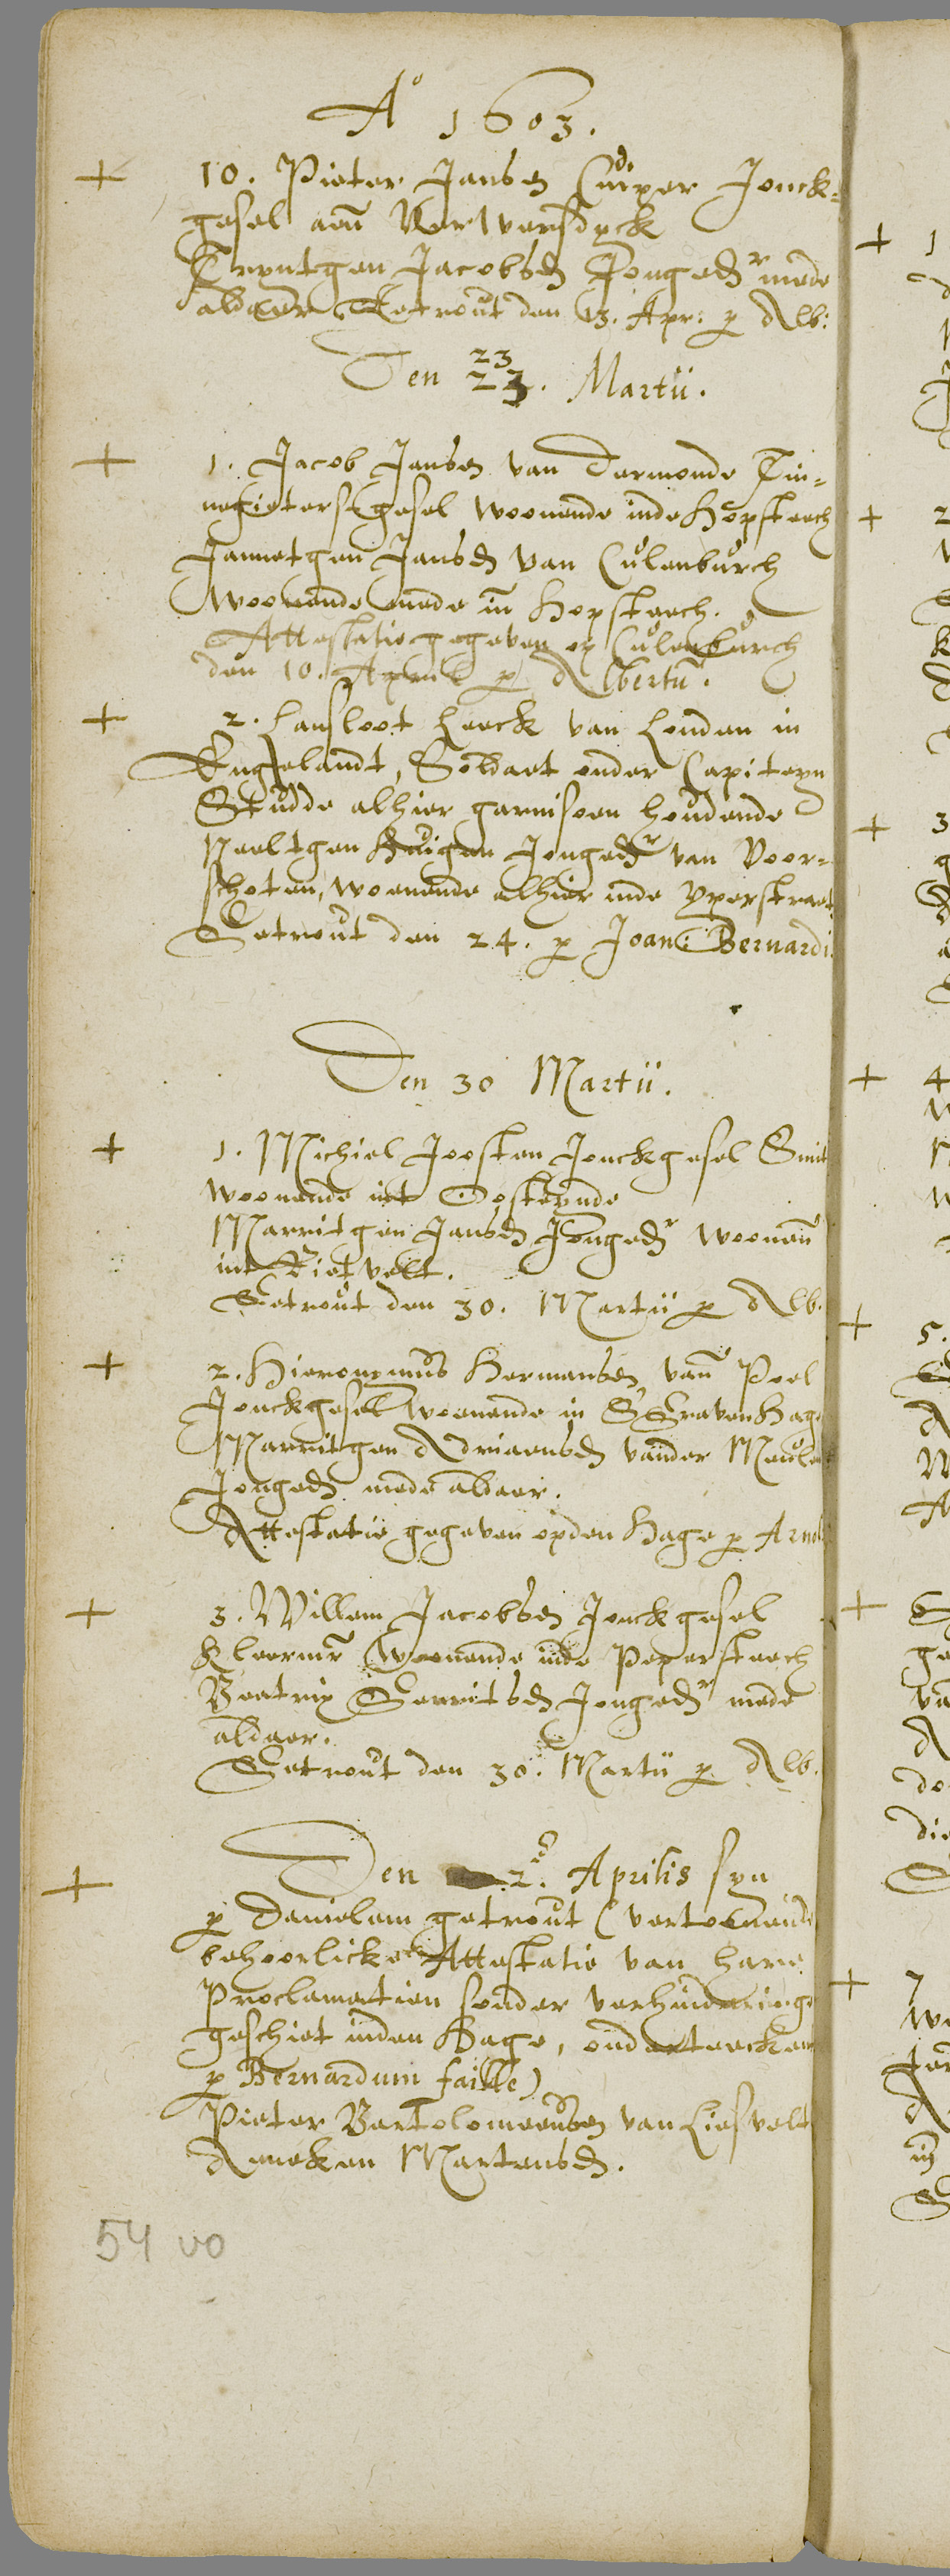 Ao 1603.
10. Pieter Jansen Cuiper Jonck=
gesel aen Verwersdyck
Tryntgen Jacobsdr Jongedr mede
aldaer Getrout den 13. Apr: p Alb:
Den 23 23. Martii.
1. Jacob Jansen van Dermonde Tin=
negieters gesel woonende inde Hopsteech
Jannetgen Jansdr van Culenburch
woonende mede in Hopsteech.
Attestatie gegeven op Culenburch
den 10. April p Albertu.
2. Lansloot Leeck van Londen in
Engelandt, Soldaet onder Capiteyn
Studde alhier garnisoen houdende
Neeltgen Huigen Jongedr van Voor=
schoten, woonende alhier inde Yperstraet
Getrout den 24. p Joan: Bernardi.
Den 30 Martii.
1. Michiel Joosten Jonckgesel Smit
woonende int Oosteynde
Marritgen Jansdr Jongedr woonen
int Rietvelt.
Getrout den 30. Martii p Alb.
2. Hieronymus Hermansen van Poel
Jonckgesel woonende in SGravenHage
Marritgen Adriaensdr vander Meule
Jongedr mede aldaer.
Attestatie gegeven opden Hage p Arnol
3. Willem Jacobsen Jonckgesel
Kleermr woonende inde Pepersteech
Beatrix Gerritsdr Jongedr mede
aldaer.
Getrout den 30. Martii p Alb.
Den 2e. Aprilis syn
p Danielem getrout (vertoenende
behoorlicke Attestatie van hare
Proclamatien sonder verhinderinge
geschiet inden Hage, onderteecken
p Bernardum faille)
Pieter Bartolomeeusen van Liesvelt
Anneken Martensdr.
54 vo